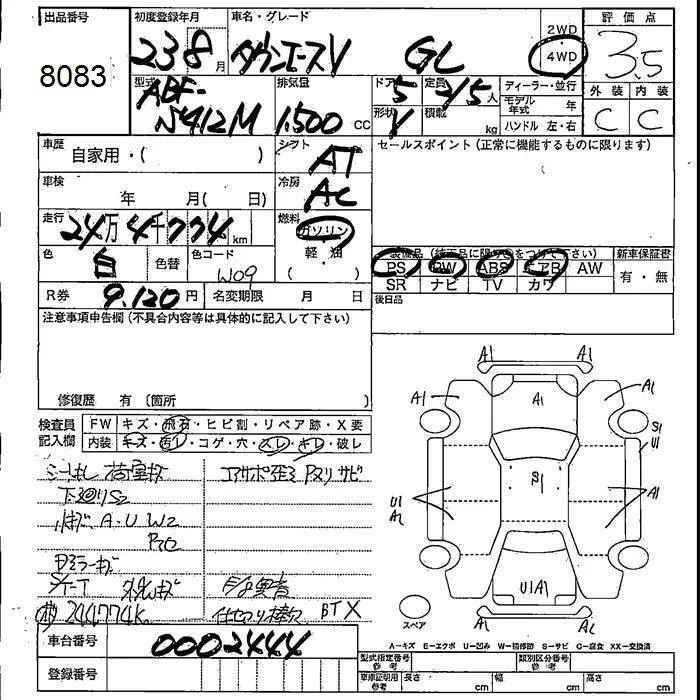 出品番号
8083
初度登録年月
23 8 月
車名・グレード
タウンエースV GL
2WD
4WD
評価点
3.5
外装 内装
C C
型式
ABF-
S412M
排気量
1.500 CC
ドア 5
形状 V
定員 2/5 人
積載 kg
ディーラー・並行
モデル年式 年
ハンドル 左・右
車歴
自家用・( )
シフト
AT
セールスポイント(正常に機能するものに限ります)
車検
年 月( 日)
冷房
AC
走行
24万4千774 km
燃料
ガソリン
軽油
( )
色
白
色替
色コード
W09
装備品(純正品に限り○をつけて下さい)
PS PW ABS エアB AW
SR ナビ TV カワ
新車保証書
有・無
R券 9.120 円
名変期限 月 日
後日品
注意事項申告欄(不具合内容等は具体的に記入して下さい)
修復歴 有(箇所
検査員記入欄
FW キズ・飛石・ヒビ割・リペア跡・X要
内装 キズ・汚レ・コゲ・穴・スレ・キレ・破レ
シートはし 荷室キズ
下廻りS2
A・U W2
エアサポ歪ミ Pヌリ サビ
Dミラーキズ
S/T-T
244774K
BTX
車台番号
0002444
登録番号
A1 A1
A1 A1 A1
S1
U1
S1
U1
A2
A1
U1A1
A1 A2
スペア
A-キズ E-エクボ U-凹み W-補修跡 S-サビ C-腐食 XX-交換済
型式指定番号 参考
類別区分番号 参考
車庫証明用 参考
長さ cm
幅 cm
高さ cm